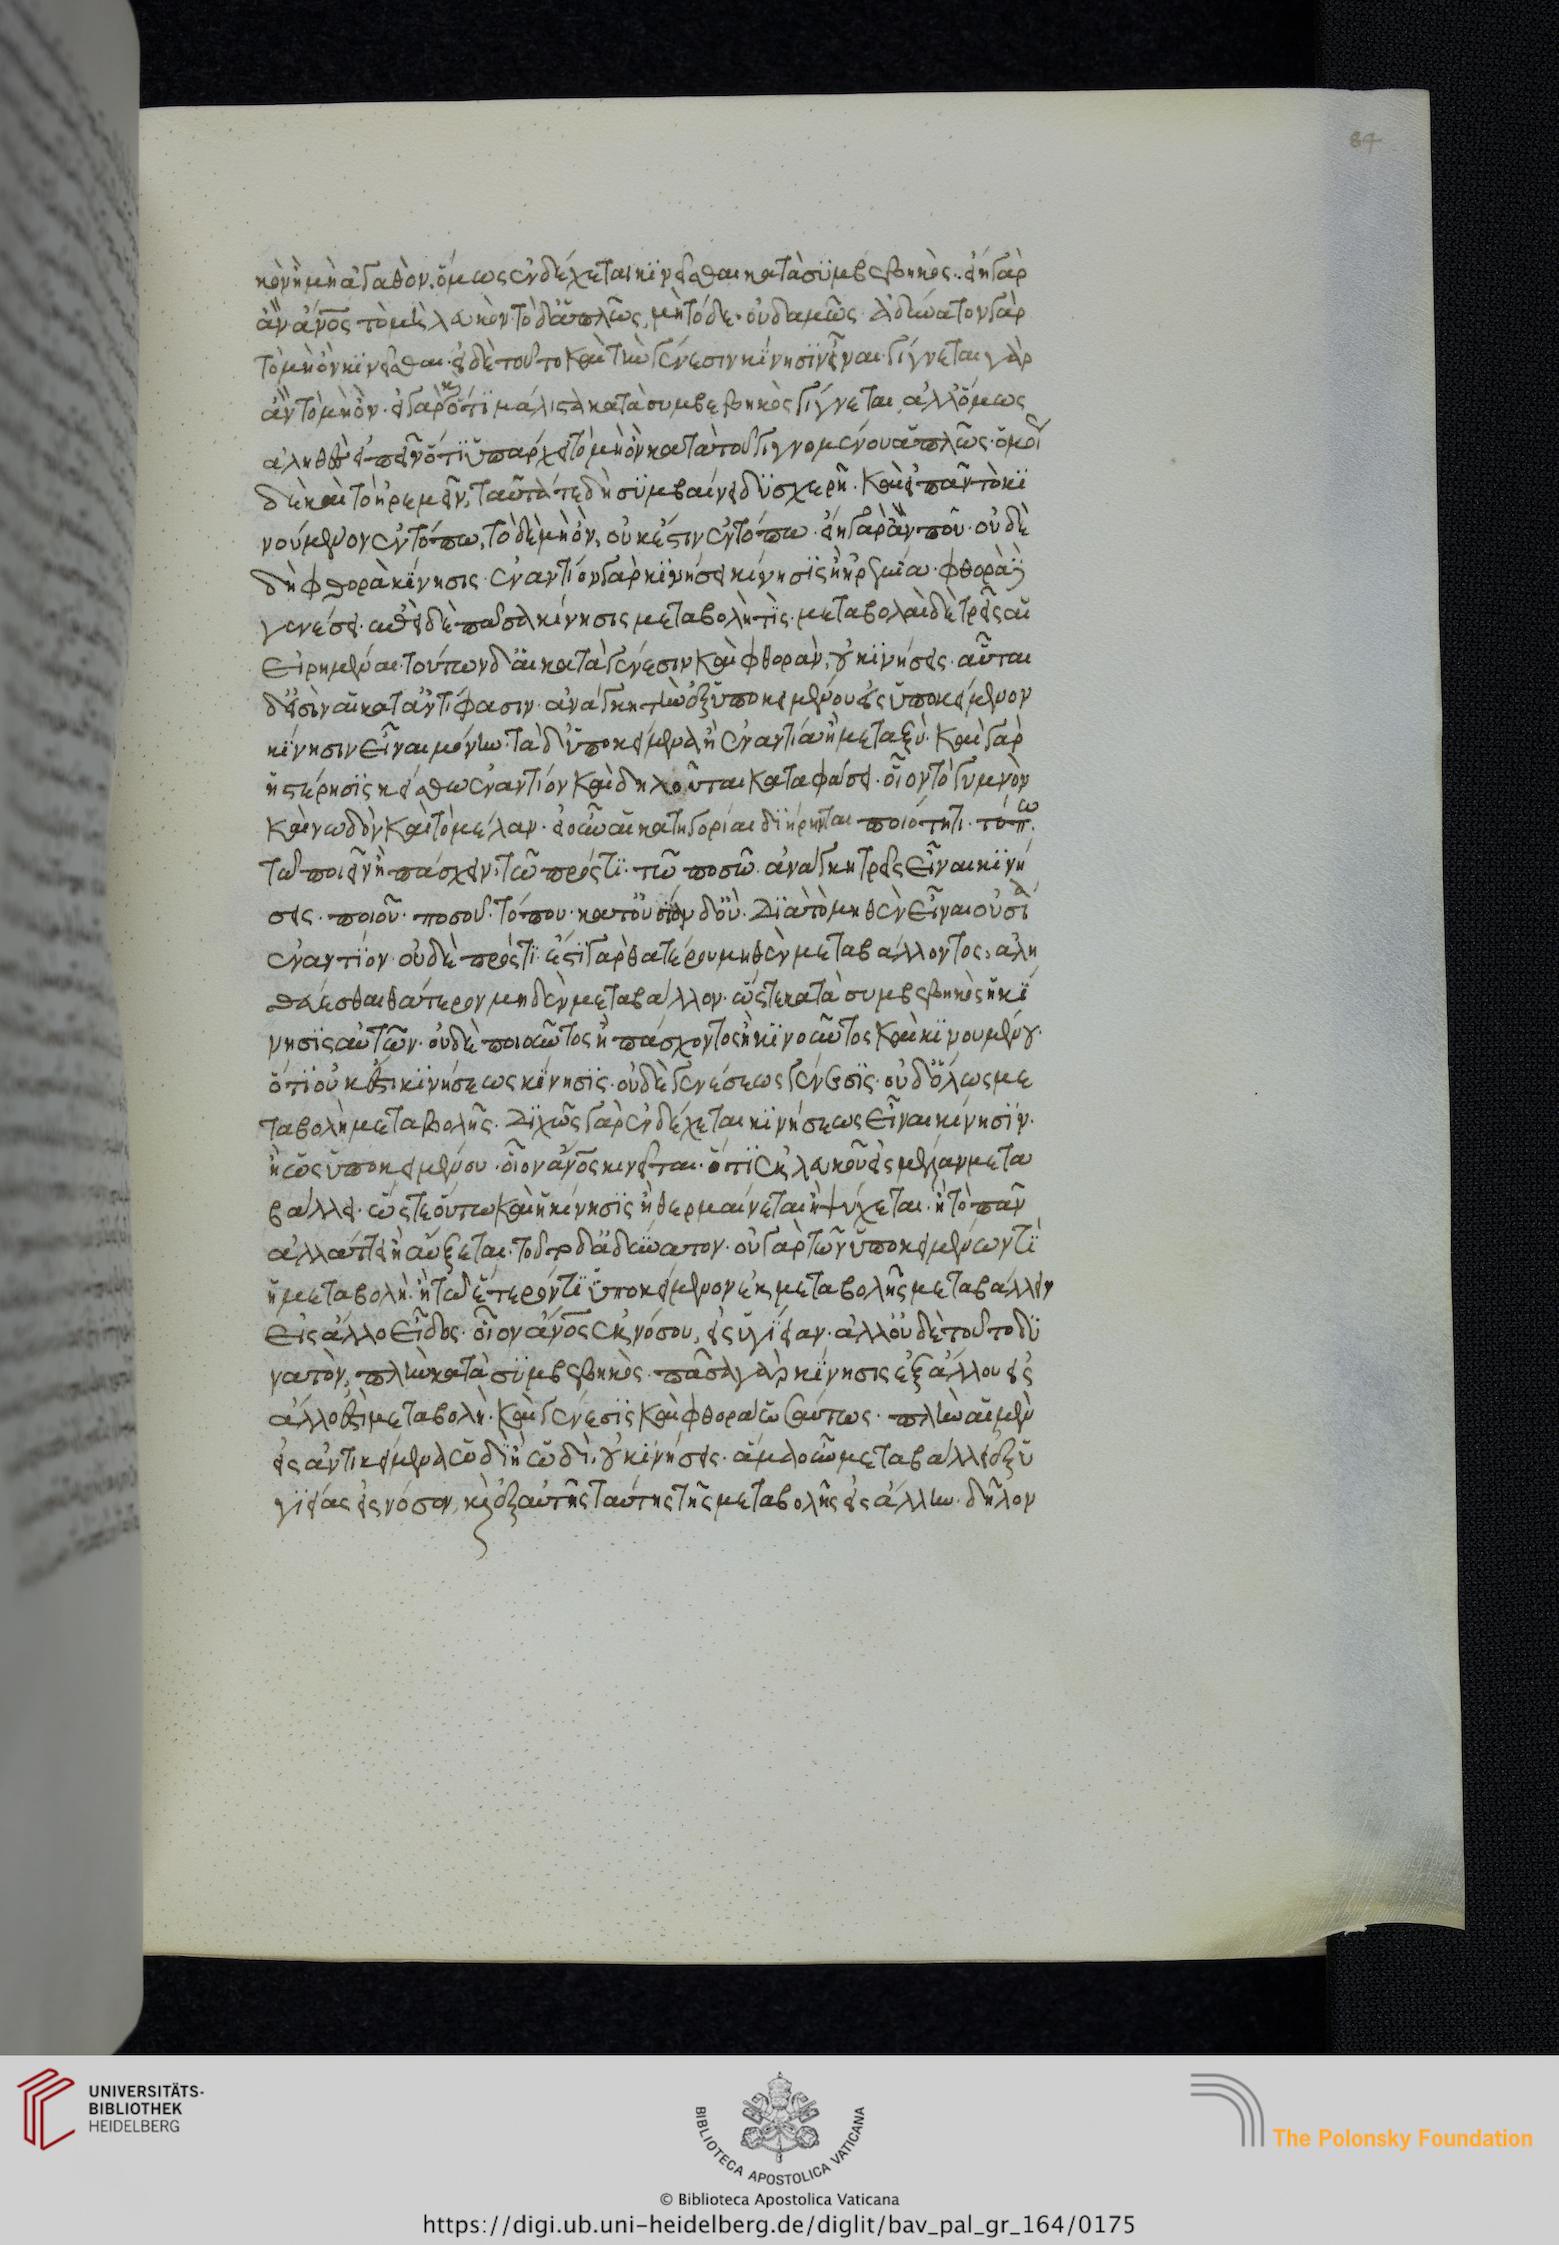 κὸν ἢ μὴ ἀγαθὸν. ὅμως ἐνδέχεται κϊνεῖσθαι κατὰ σϋμβεβηκὸς. εἴη γὰρ
ἂν ἄνος τὸ μὴ λευκὸν. τὸ δἁπλῶς, μὴ τόδε. οὐδαμῶς. Ἀδύνατον γὰρ
τὸ μὴ ὂν κϊνεῖσθαι. εἰ δὲ τοῦτο καὶ τὴν γένεσιν κίνησϊν εἶναι. γίγνεται γὰρ
ἂν τὸ μὴ ὂν. εἰ γὰρ κ ὅτϊ μάλιστα κατὰ συμβεβηκὸς γίγνεται, ἀλλὅμως
ἀληθὲς εἰπεῖν ὅτϊ ὑπάρχει τὸ μὴ ὂν κατὰ τοῦ γιγνομένου ἁπλῶς. ὁμοί
δὲ καὶ τὸ ἠρεμεῖν, ταῦτά τε δὴ σϋμβαίνει δϋσχερῆ. Καὶ εἰ πᾶν τὸ κϊ
νούμενον ἐν τόπω, τὸ δὲ μὴ ὂν, οὐκ ἔστιν ἐν τόπω. εἴη γὰρ ἂν ποῦ. οὐδὲ
δὴ φθορὰ κίνησις. ἐναντίον γὰρ κϊνήσει κίνησϊς ἢ ἠρεμία. φθορὰ δὲ
γενέσει. ἐπεὶ δὲ πᾶσα κίνησις μεταβολὴ τὶς. μεταβολαὶ δὲ τρεῖς αἱ
Εἰρημέναι. τούτων δαἱ κατὰ γένεσιν καὶ φθορὰν, οὐ κϊνήσεις. αὗται
δεἰσὶν αἱ κατ ἀντίφασιν. ἀνάγκη τὴν ἐξ ὑποκειμένου εἰς ὑποκείμενον
κίνησιν Εἶναι μόνην. τὰ δὑποκείμενα ἢ ἐναντία ἢ μεταξὺ. Καὶ γὰρ
ἡ στέρησϊς κείσθω ἐναντίον καὶ δηλοῦται καταφάσει. οἷον τὸ γυμνὸν
καὶ νωδὸν καὶ τὸ μέλαν. εἰ οὖν αἱ κατηγορίαι διήρηνται ποιότητι. τόπω.
τῶ ποιεῖν ἢ πάσχειν. τῶ πρός τϊ. τῶ ποσῶ. ἀνάγκη τρεῖς Εἶναι κϊνή
σεις. ποιοῦ. ποσοῦ. τόπου. κατοὐσίαν δοὐ. Δϊὰ τὸ μηθὲν Εἶναι οὐσία
ἐναντίον. οὐδὲ πρὸς τϊ. ἔστϊ γὰρ θατέρου μηθὲν μεταβάλλοντος, ἀλη
θεύεσθαι θάτερον μηδὲν μεταβάλλον. ὥστε κατὰ συμβεβηκὸς ἡ κί
νησϊς αὐτῶν. οὐδὲ ποιοῦντος ἢ πάσχοντος ἢ κϊνοῦντος καὶ κϊνουμένου.
ὅτϊ οὐκ ἔστι κϊνήσεως κίνησϊς. οὐδὲ γενέσεως γένεσϊς. οὐδὅλως με
ταβολὴ μεταβολῆς. Διχῶς γὰρ ἐνδέχεται κϊνήσεως Εἶναι κίνησϊν.
ἢ ὡς ὑποκειμένου. οἷον ἄνος κινεῖται. ὅτϊ ἐκ λευκοῦ εἰς μέλαν μετα
βάλλει. ὥστε οὕτω καὶ ἡ κίνησϊς ἢ θερμαίνεται ἢ ψύχεται. ἢ τόπον
ἀλλάττει ἢ αὔξεται. τοῦτο δἀδύνατον. οὐ γὰρ τῶν ὑποκειμένων τϊ
ἡ μεταβολὴ. ἢ τῶ ἕτερόν τϊ ὑποκείμενον ἐκ μεταβολῆς μεταβάλλειν
Εἰς ἄλλο Εἶδος. οἷον ἄνος ἐκ νόσου, εἰς ὑγίειαν. ἀλλοὐδὲ τοῦτο δϋ
νατὸν, πλὴν κατὰ σϋμβεβηκὸς. πᾶσα γὰρ κίνησις ἐξ ἄλλου εἰς
ἄλλο ἐστὶ μεταβολὴ. καὶ γένεσϊς καὶ φθορὰ ὡσαύτως. πλὴν αἱ μὲν
εἰς ἀντικείμενα ὡδϊ ἢ ὡδὶ. οὐ κϊνήσεις. ἅμα οὖν μεταβάλλει ἐξ ὑ
γϊείας εἰς νόσον, κ ἐξ αὐτῆς ταύτης τῆς μεταβολῆς εἰς ἄλλην. δῆλον
84
UNIVERSITÄTS-
BIBLIOTHEK
HEIDELBERG
BIBLIOTECA APOSTOLICA VATICANA
The Polonsky Foundation
© Biblioteca Apostolica Vaticana
https://digi.ub.uni-heidelberg.de/diglit/bav_pal_gr_164/0175